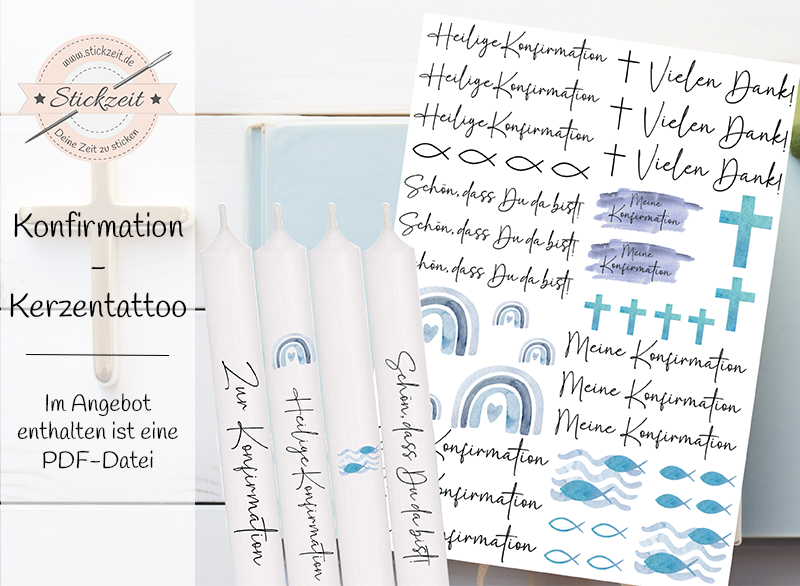 www.stickzeit.de
Stickzeit
Deine Zeit zu sticken
Konfirmation
-
Kerzentattoo
Im Angebot
enthalten ist eine
PDF-Datei
Zur Konfirmation
Heilige Konfirmation
Schön, dass Du da bist!
Heilige Konfirmation
Heilige Konfirmation
Heilige Konfirmation
Vielen Dank!
Vielen Dank!
Vielen Dank!
Schön, dass Du da bist!
Schön, dass Du da bist!
Schön, dass Du da bist!
Meine
Konfirmation
Meine
Konfirmation
Meine Konfirmation
Meine Konfirmation
Meine Konfirmation
Konfirmation
Konfirmation
Konfirmation